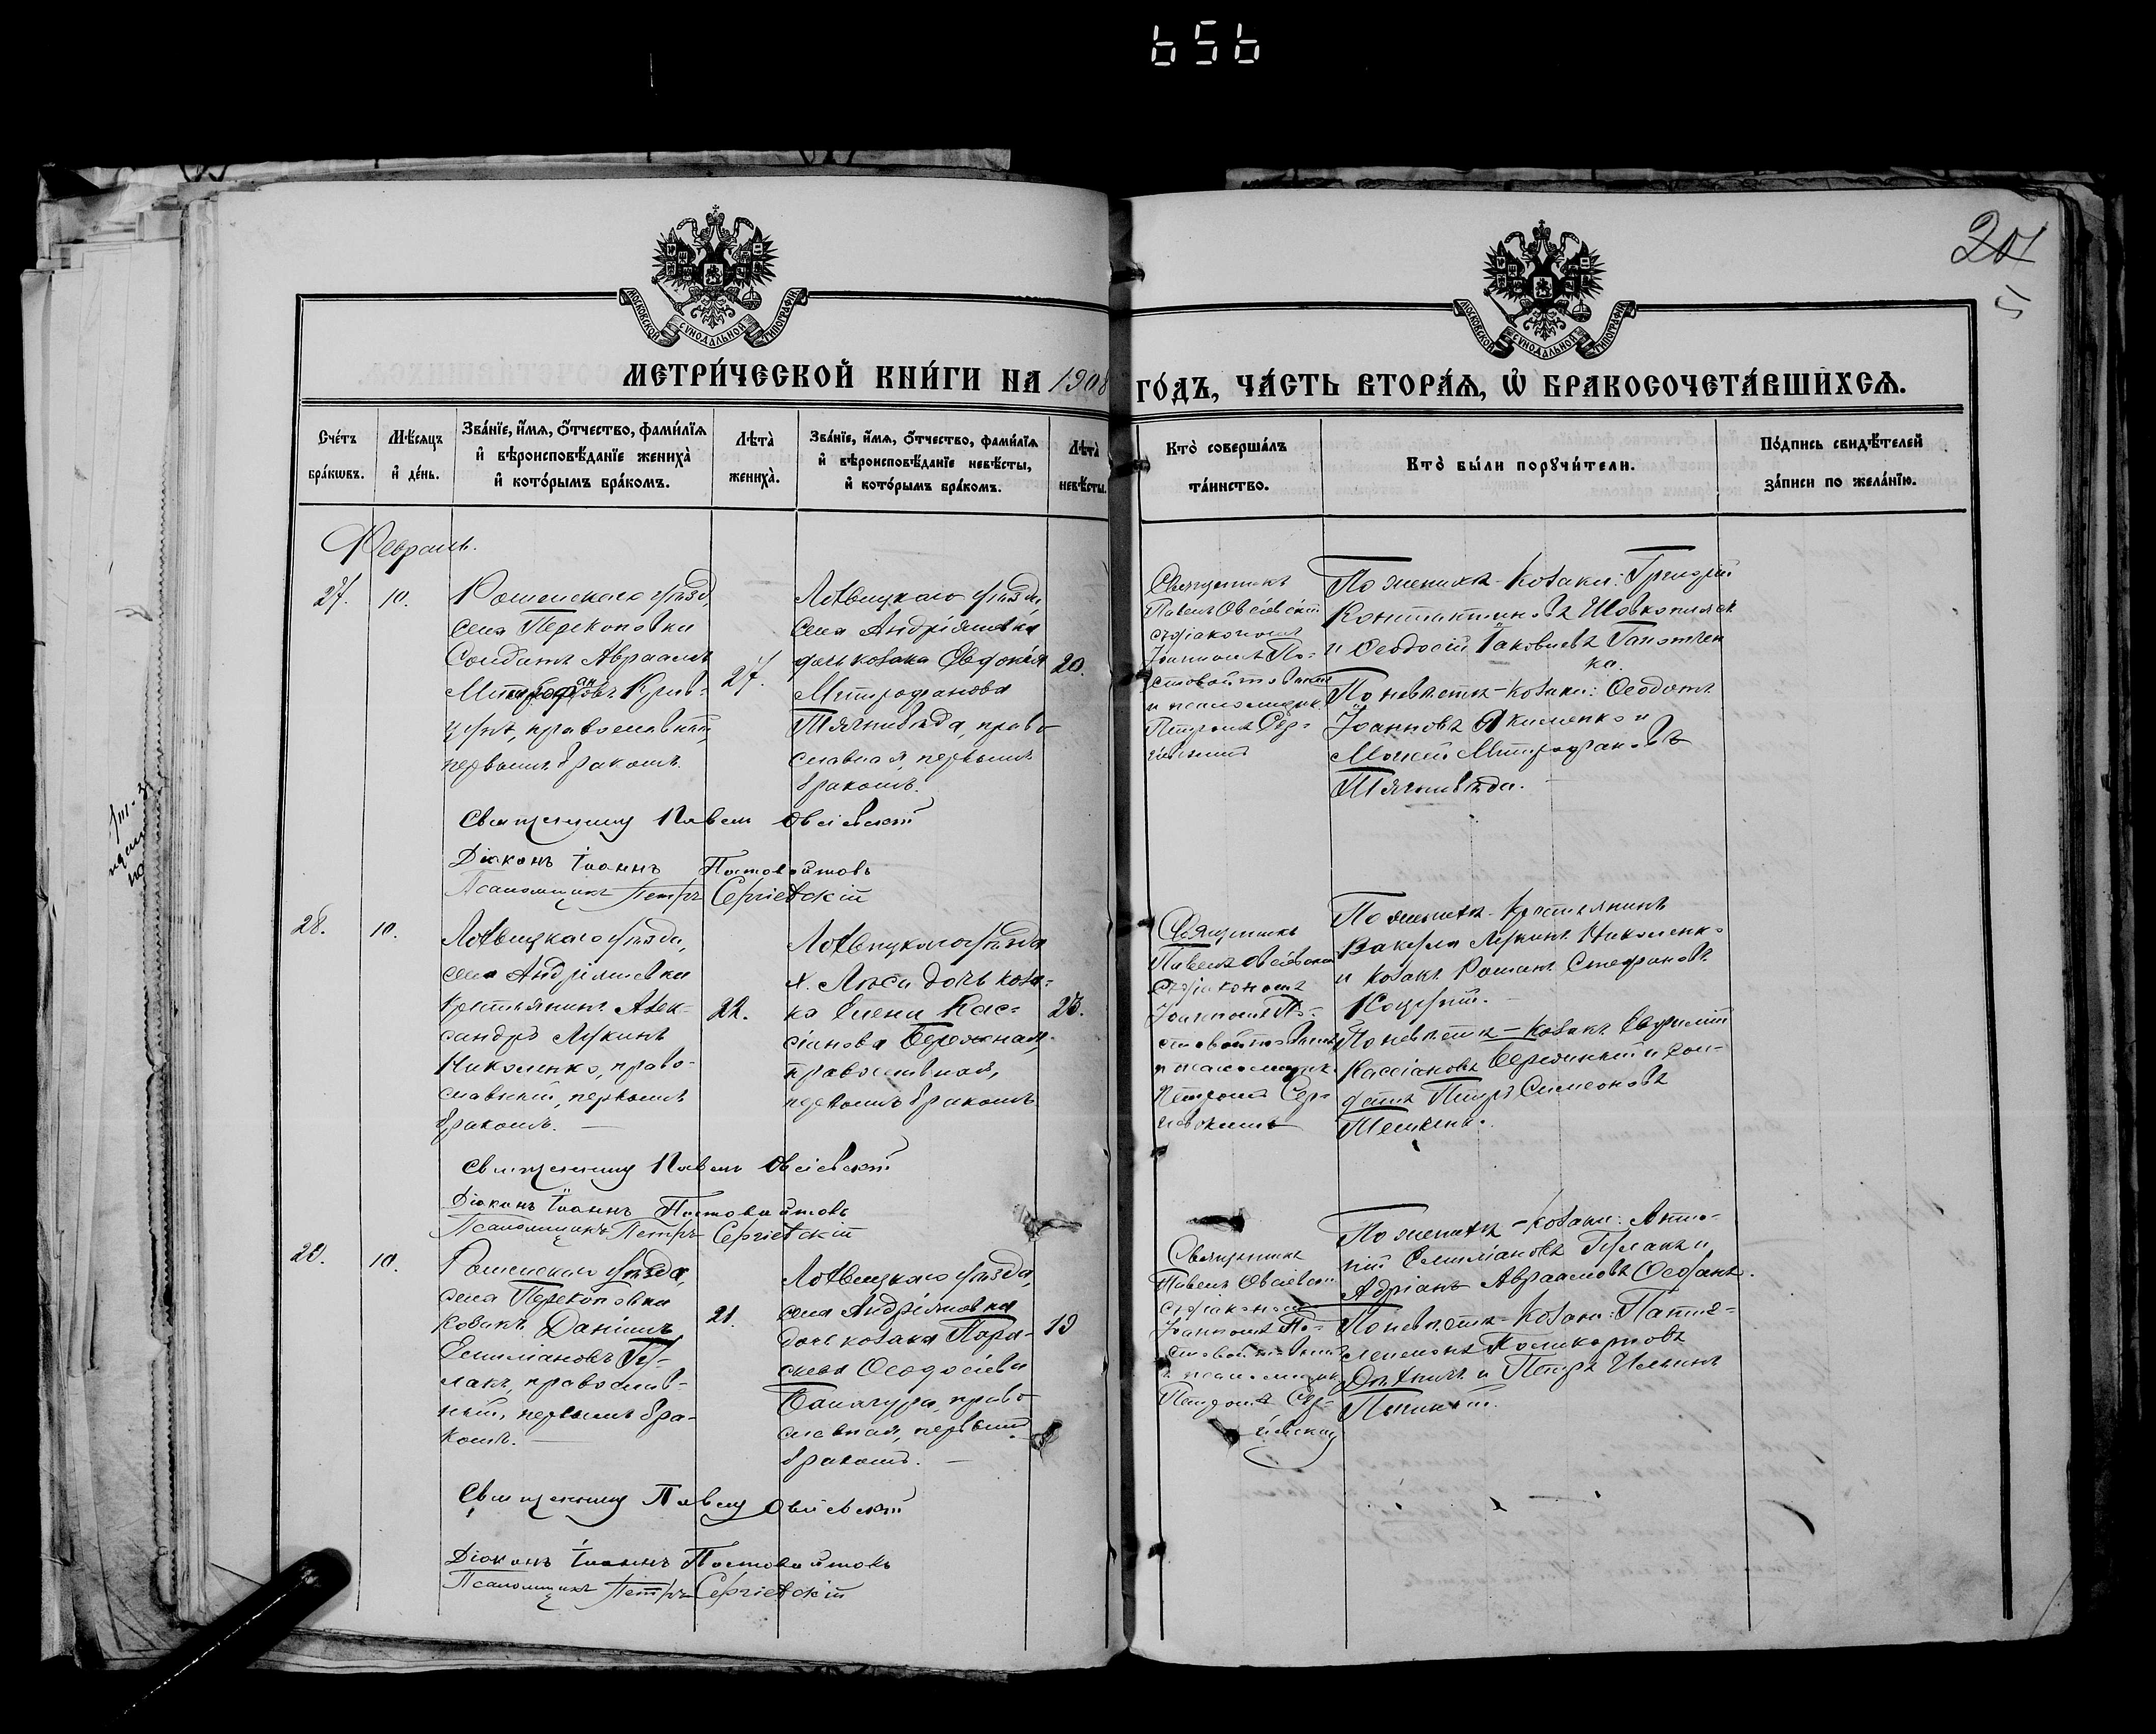 656
201
МОСКОВСКОЙ СУНОДАЛЬНОЙ ТИПОГРАФІИ
МОСКОВСКОЙ СУНОДАЛЬНОЙ ТИПОГРАФІИ
МЕТРИ́ЧЕСКОЙ КНИ́ГИ НА 1908 ГО́ДЪ, ЧА́СТЬ ВТОРА́Я, Ѡ҆ БРАКОСОЧЕТА́ВШИХСЯ.
Сче́тъ бра́кѡвъ.
Мѣ́сяцъ и҆ де́нь.
Зва́нїе, и҆́мя, ѻ҆́тчество, фами́лїя и҆ вѣроисповѣ́данїе жениха̀ и҆ кото́рымъ бра́комъ.
Лѣта̀ жениха̀.
Зва́нїе, и҆́мя, ѻ҆́тчество, фами́лїя и҆ вѣроисповѣ́данїе невѣ́сты, и҆ кото́рымъ бра́комъ.
Лѣта̀ невѣ́сты.
Кто̀ соверша́лъ та́инство.
Кто̀ бы́ли порꙋчи́тели.
По́дпись свидѣ́телей за́писи по жела́нїю.
Февраль.
27.
10.
Роменскаго уѣзда,
села Перекоповки
Солдатъ Авраамъ
Митрофановъ Крив-
православный,
первымъ бракомъ.
27.
Лохвицкаго уѣзда,
села Андріяшевки
дочь козака Евдокія
Митрофанова
Тягнибѣда, право-
славная, первымъ
бракомъ.
20.
Священникъ
Павелъ Овсіевскій
съ діакономъ
Іоанномъ По-
стовойтовымъ
и псаломщик.
Петромъ Сер-
гіевскимъ
По женихѣ - козаки: Григорій
Константиновъ Шовкопляс
и Ѳеодосій Іаковлевъ Гапотчен
ко.
По невѣстѣ - козаки: Ѳеодотъ
Іоанновъ Якименко и
Моисей Митрофановъ
Тягнибѣда.
Священникъ Павелъ Овсіевскій
Діаконъ Іоаннъ Постовойтовъ
Псаломщикъ Петръ Сергіевскій
28.
10.
Лохвицкаго уѣзда,
села Андріяшевки
крестьянинъ Алек-
сандръ Лукинъ
Николенко, право-
славный, первымъ
бракомъ.
22.
Лохвицкаго уѣзда
х. Лѣси дочь коза-
ка Елена Кас-
сіанова Бережная,
православная,
первымъ бракомъ
23.
Священникъ
Павелъ Овсіевскій
съ діакономъ
Іоанномъ По-
стовойтовымъ
и псаломщик.
Петромъ Сер-
гіевскимъ
По женихѣ - крестьянинъ
Вакула Лукинъ Николенко
и козакъ Романъ Стефановъ
По невѣстѣ - козакъ Евфимій
Кассіановъ Бережный и сол-
датъ Петръ Симеоновъ
Священникъ Павелъ Овсіевскій
Діаконъ Іоаннъ Постовойтовъ
Псаломщикъ Петръ Сергіевскій
29.
10.
Роменскаго уѣзда,
села Перекоповки
козакъ Даніилъ
Емиліановъ Гу-
лакъ, православ-
ный, первымъ бра-
комъ.
21.
Лохвицкаго уѣзда,
села Андріяшовки
дочь козака Пара-
скева Ѳеодосіева
православная, первымъ
бракомъ.
19
Священникъ
Павелъ Овсіевскій
съ діакономъ
Іоанномъ По-
стовойтовымъ
и псаломщик.
Петромъ Сер-
гіевскимъ
По женихѣ - козаки: Анто-
ній Емиліановъ Гулакъ и
Адріанъ Авраамовъ
По невѣстѣ - козаки: Панте-
леимонъ Поликарповъ
и Петръ Ильинъ
Священникъ Павелъ Овсіевскій
Діаконъ Іоаннъ Постовойтовъ
Псаломщикъ Петръ Сергіевскій